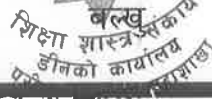 बल्खु
शिक्षा शास्त्र संकाय
डीनको कार्यालय